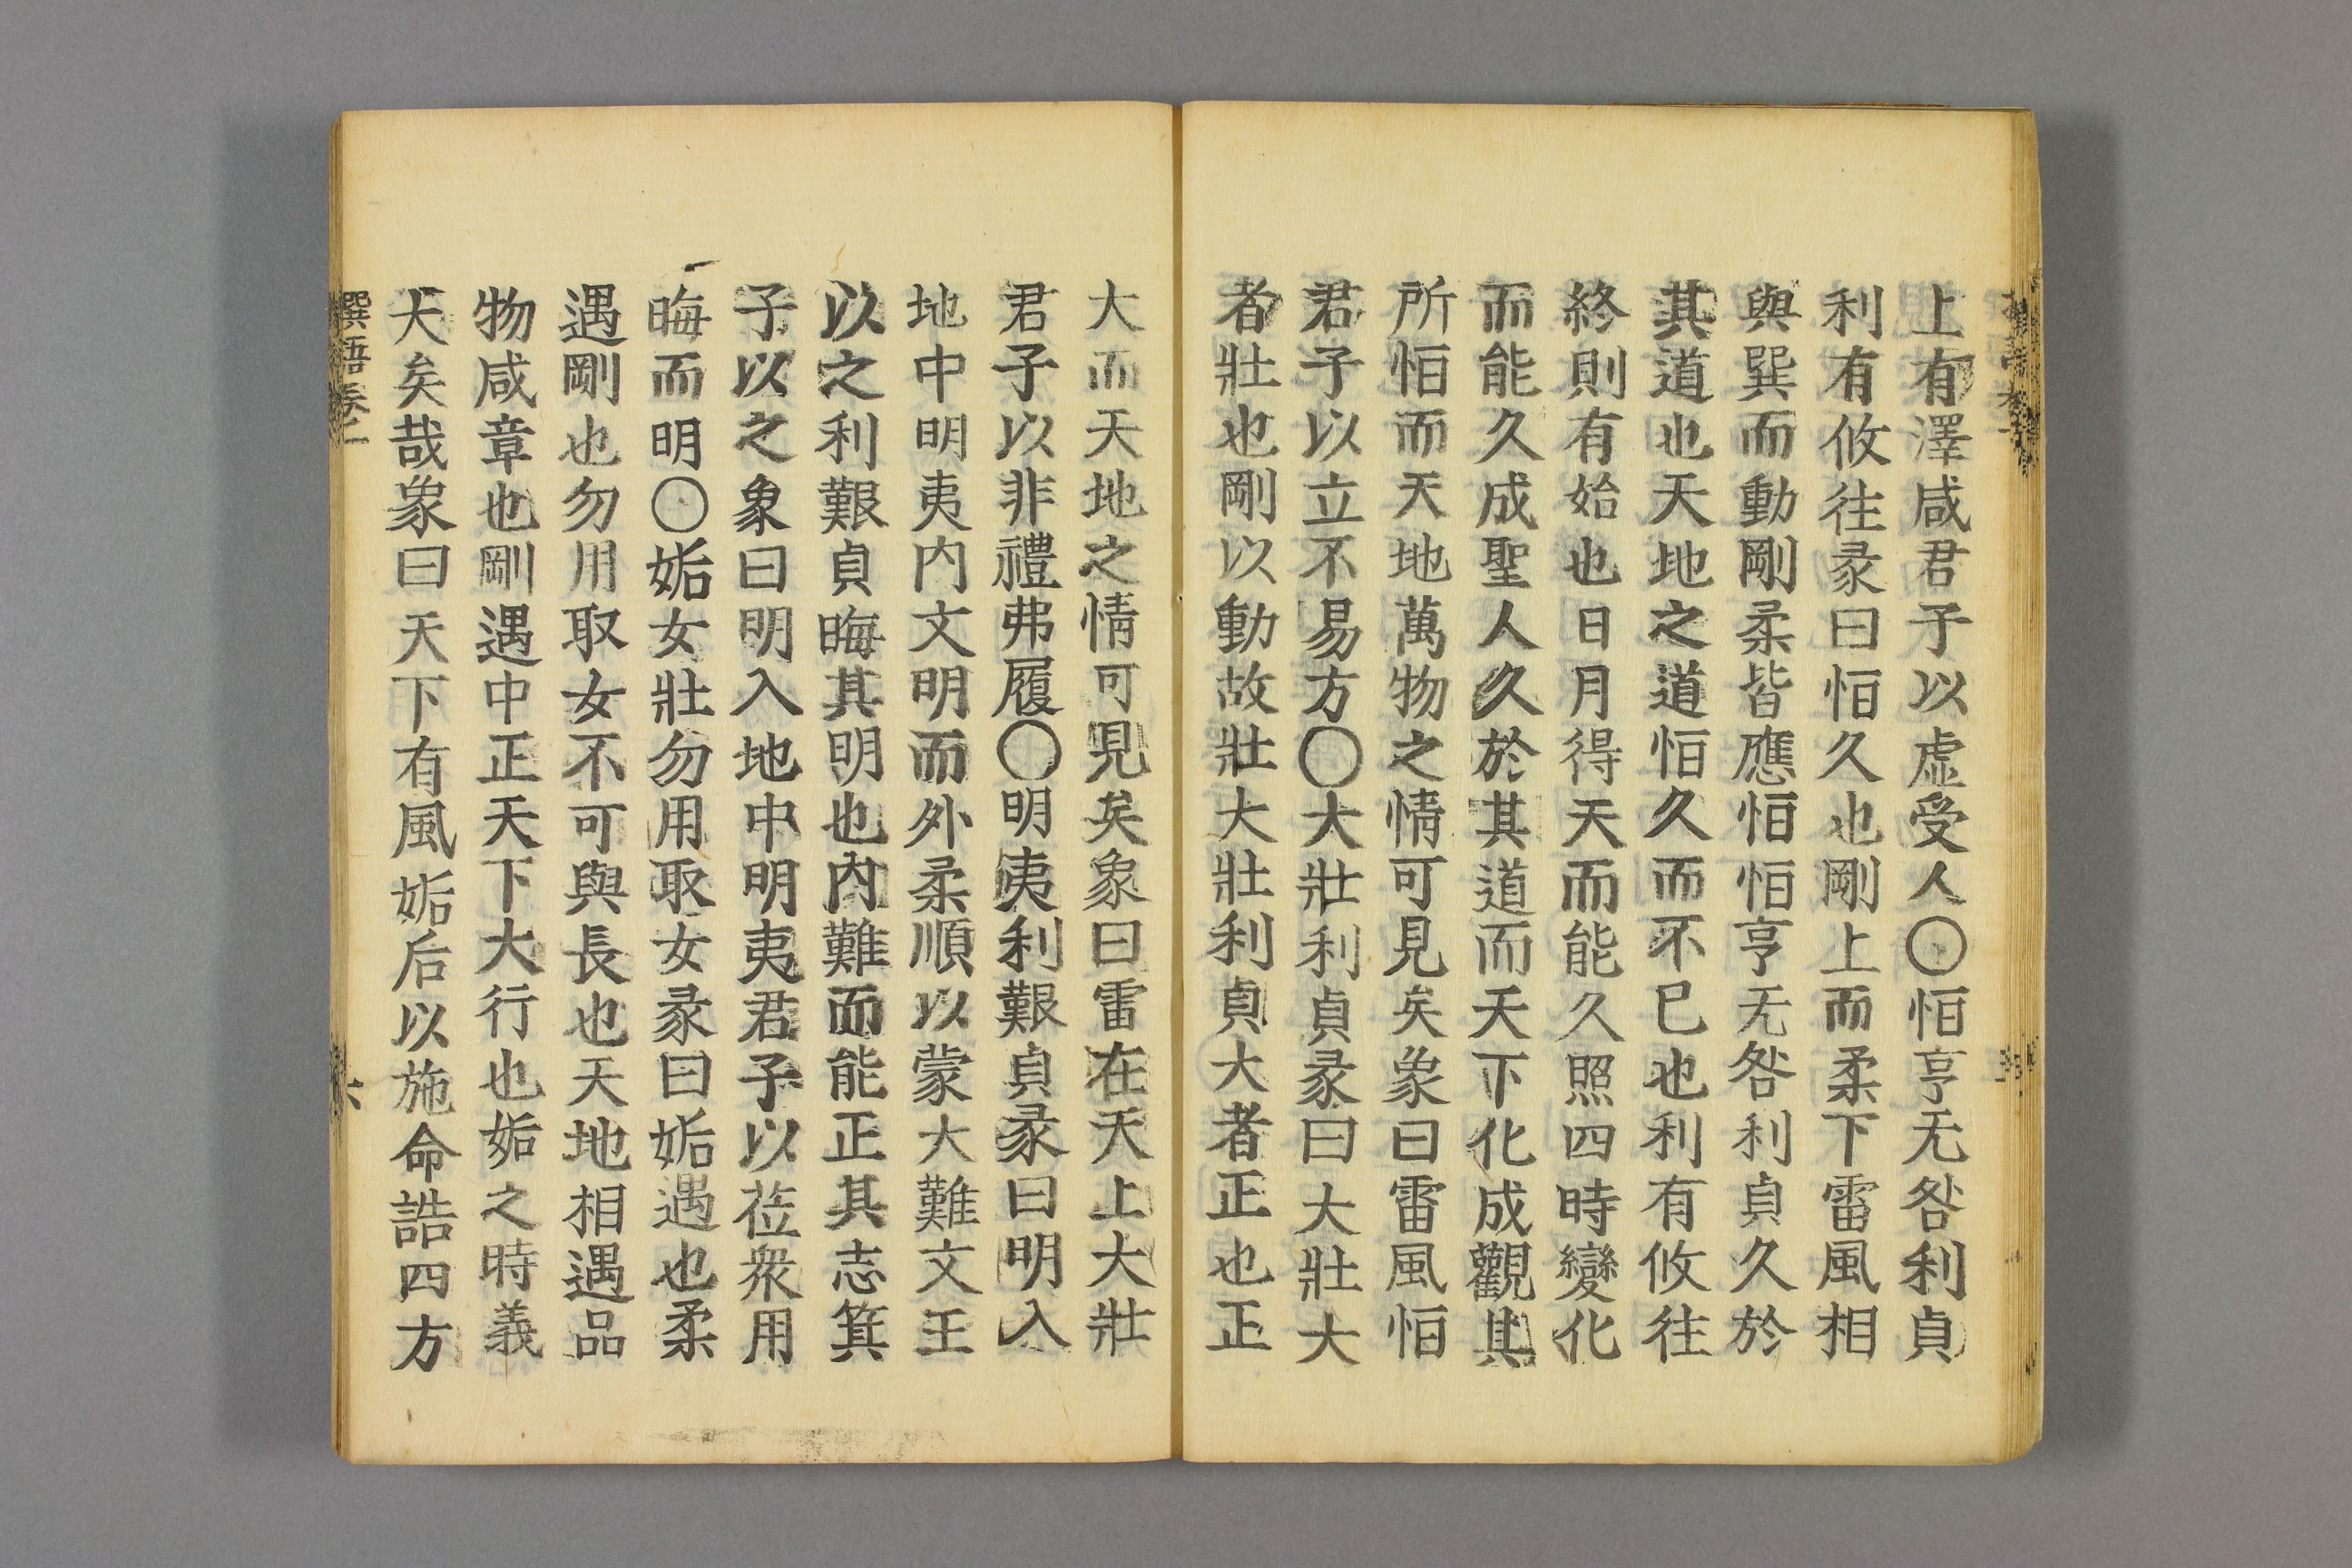 上有澤咸君子以虛受人〇恒亨无咎利貞
利有攸往彖曰恒久也剛上而柔下雷風相
與巽而動剛柔皆應恒恒亨无咎利貞久於
其道也天地之道恒久而不已也利有攸往
終則有始也日月得天而能久照四時變化
而能久成聖人久於其道而天下化成觀其
所恒而天地萬物之情可見矣象曰雷風恒
君子以立不易方〇大壯利貞彖曰大壯大
者壯也剛以動故壯大壯利貞大者正也正
大而天地之情可見矣象曰雷在天上大壯
君子以非禮弗履〇明夷利艱貞彖曰明入
地中明夷内文明而外柔順以蒙大難文王
以之利艱貞晦其明也内難而能正其志箕
子以之象曰明入地中明夷君子以莅衆用
晦而明〇姤女壯勿用取女彖曰姤遇也柔
遇剛也勿用取女不可與長也天地相遇品
物咸章也剛遇中正天下大行也姤之時義
大矣哉象曰天下有風姤后以施命誥四方